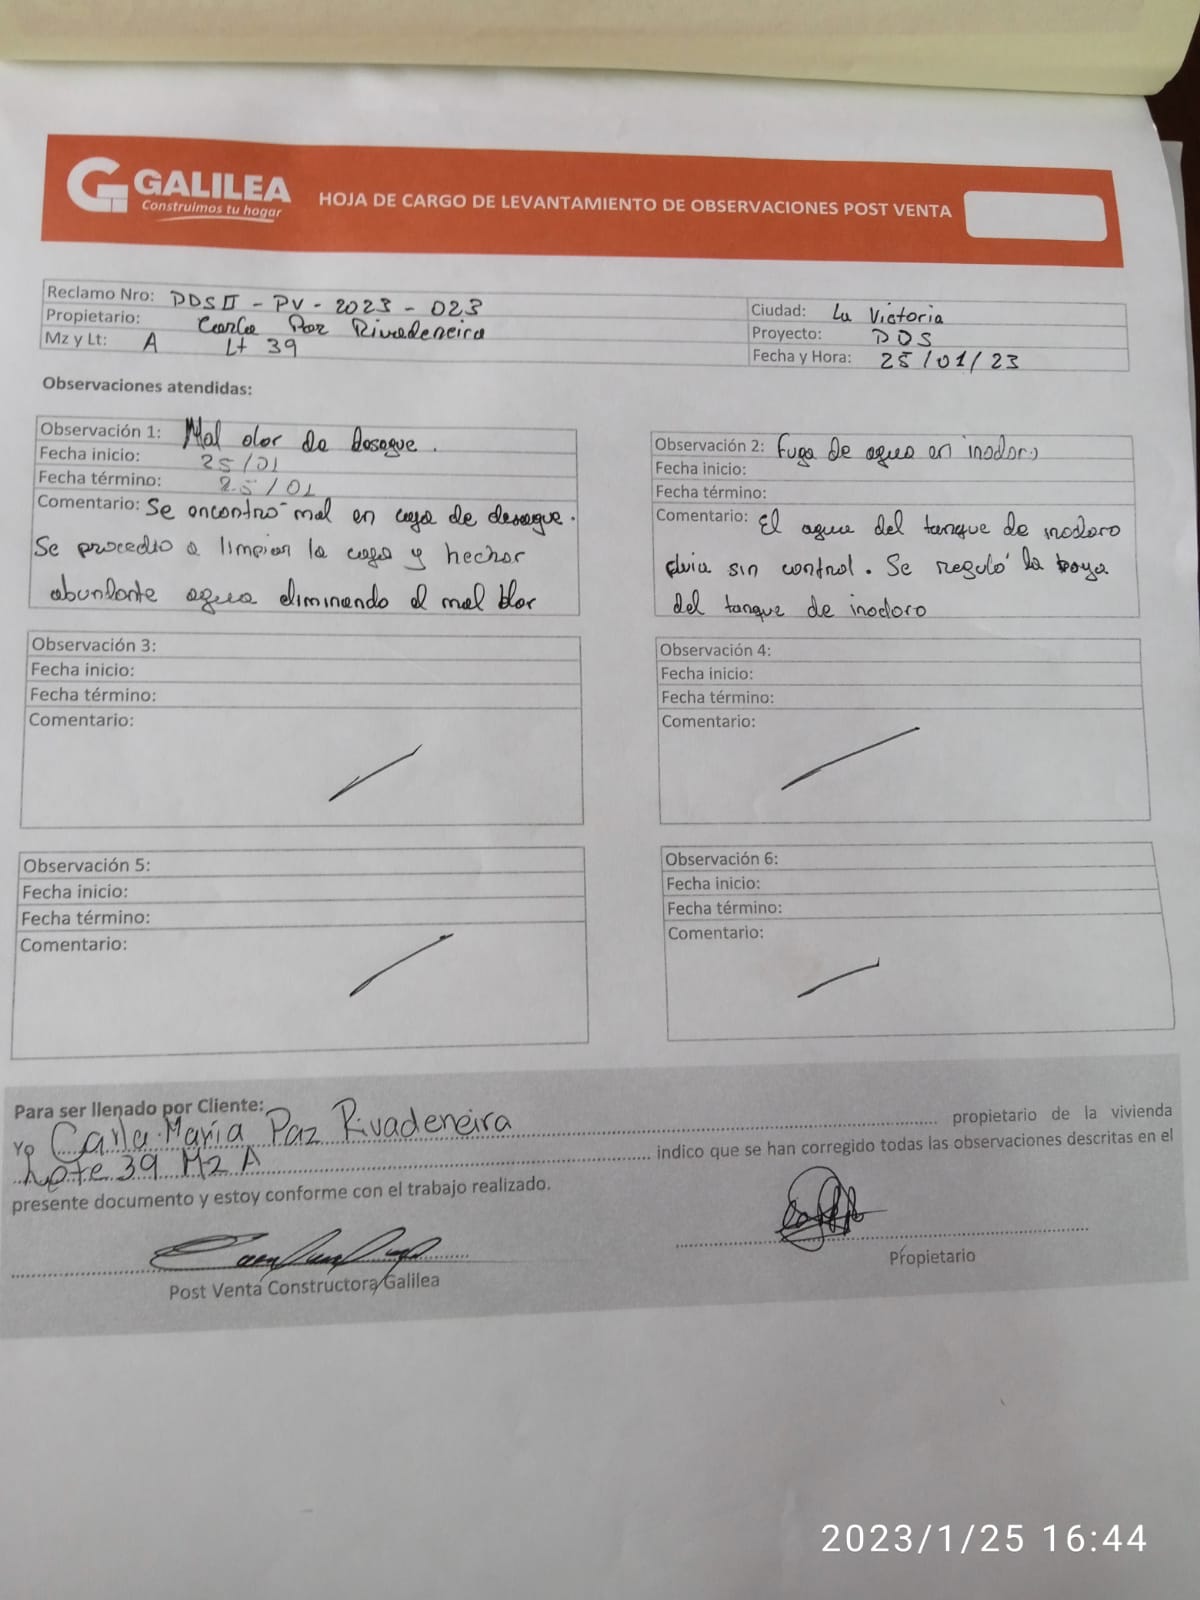 GALILEA
Construimos tu hogar
HOJA DE CARGO DE LEVANTAMIENTO DE OBSERVACIONES POST VENTA
Reclamo Nro: DDSII - PV - 2023 - 023
Propietario: Carla Paz Rivadeneira
Mz y Lt: A Lt 39
Ciudad: La Victoria
Proyecto: DDS
Fecha y Hora: 25/01/23
Observaciones atendidas:
Observación 1: Mal olor de desague.
Fecha inicio: 25/01
Fecha término: 25/01
Comentario: Se encontro mal en caja de desague.
Se procedio a limpiar la caja y hechar
abundante agua eliminando el mal olor
Observación 2: Fuga de agua en inodoro
Fecha inicio:
Fecha término:
Comentario: El agua del tanque de inodoro
sin control. Se reguló la boya
del tanque de inodoro
Observación 3:
Fecha inicio:
Fecha término:
Comentario:
Observación 4:
Fecha inicio:
Fecha término:
Comentario:
Observación 5:
Fecha inicio:
Fecha término:
Comentario:
Observación 6:
Fecha inicio:
Fecha término:
Comentario:
Para ser llenado por Cliente:
Yo Carla María Paz Rivadeneira propietario de la vivienda
Lote 39 Mz A indico que se han corregido todas las observaciones descritas en el
presente documento y estoy conforme con el trabajo realizado.
Post Venta Constructora Galilea
Propietario
2023/1/25 16:44